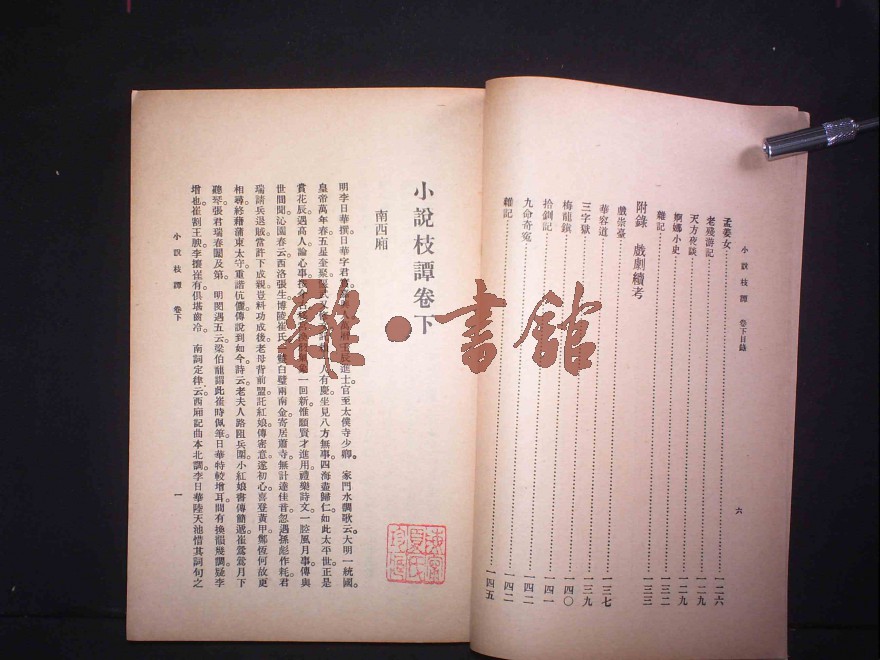 小說枝譚 卷下目錄
孟姜女 一二六
老殘游記 一二九
天方夜談 一二九
婀娜小史 一三二
雜記 一三三
附錄 戲劇續考
戲祟臺
華容道 一三七
三字獄 一三九
梅龍鎮 一四〇
拾釧記 一四一
九命奇冤 一四二
雜記 一四五
六
小說枝譚卷下
南西廂
明李日華撰日華字君實 進士官至太僕寺少卿。 家門水調歌云大明一統國。
皇帝萬年春五星奎聚 人有慶坐見八方無事四海盡歸仁如此太平世正是
賞花辰遇高人論心事 一回新惟願賢才進用禮樂詩文一腔風月事傳與
世間聞沁園春云西洛張生博陵崔氏 白璧兩南金寄居蕭寺無計達佳音忽遇孫彪作耗君
瑞請兵退賊當許下成親豈料功成後老母背前盟託紅娘傳密意遂初心喜登黃甲鄭恆何故更
相尋終藉蒲東太守重諧伉儷傳說到如今詩云老夫人路阻兵圍小紅娘書傳簡遞崔鶯鶯月下
聽琴張君瑞春闈及第。 明閔遇五云梁伯龍謂此崔時佩筆日華特較增耳間有換韻幾調疑李
增也崔割王腴李攘崔有俱堪齒冷。 南詞定律云西廂記曲本北調李日華陸天池惜其詞句之
小說枝譚 卷下
一
書館